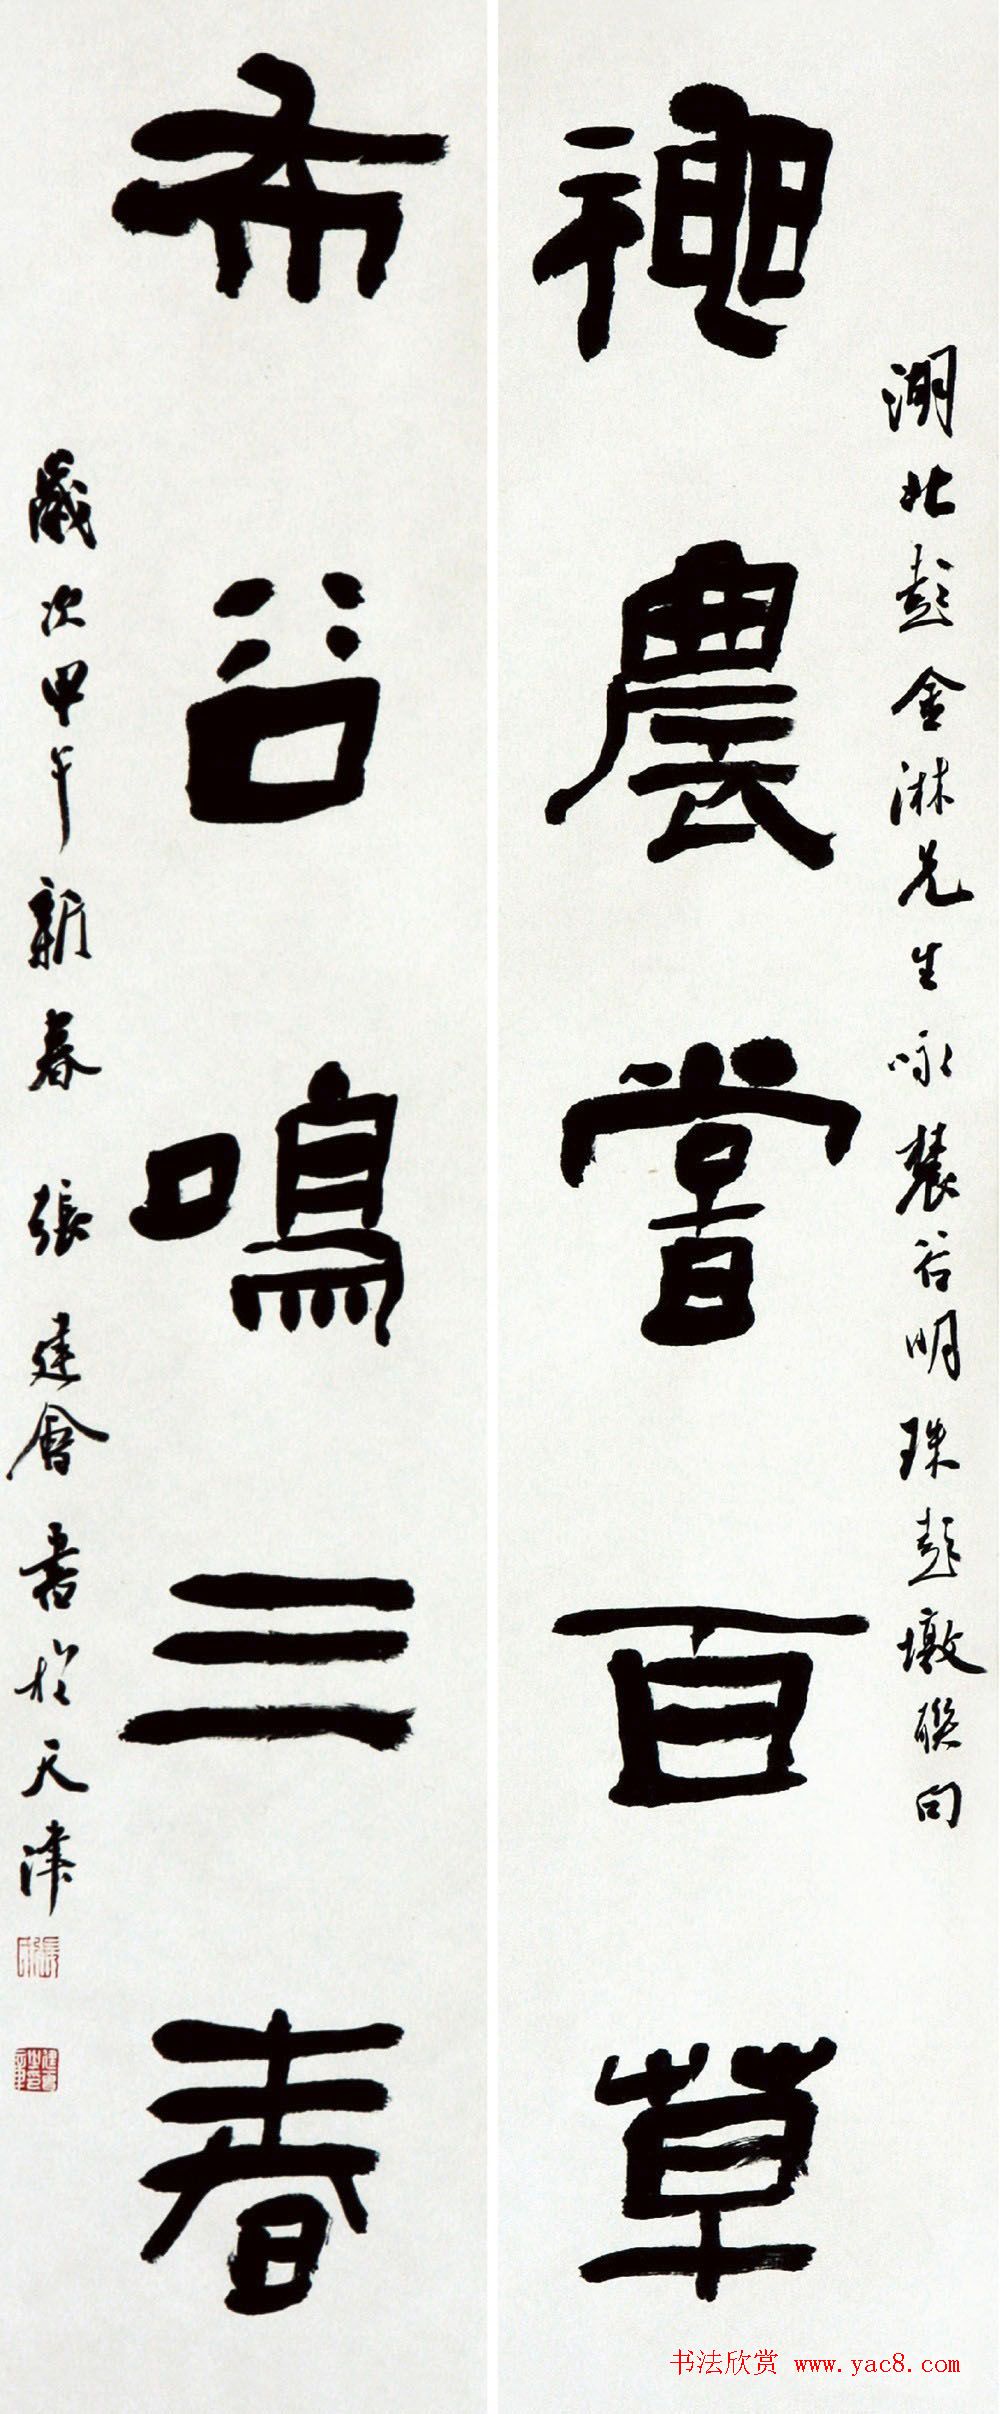 湖北彭金淋先生咏農谷明珠彭墩聯句
神農嘗百草
布谷鳴三春
歲次甲午新春 張建會書於天津
书法欣赏 www.yac8.com